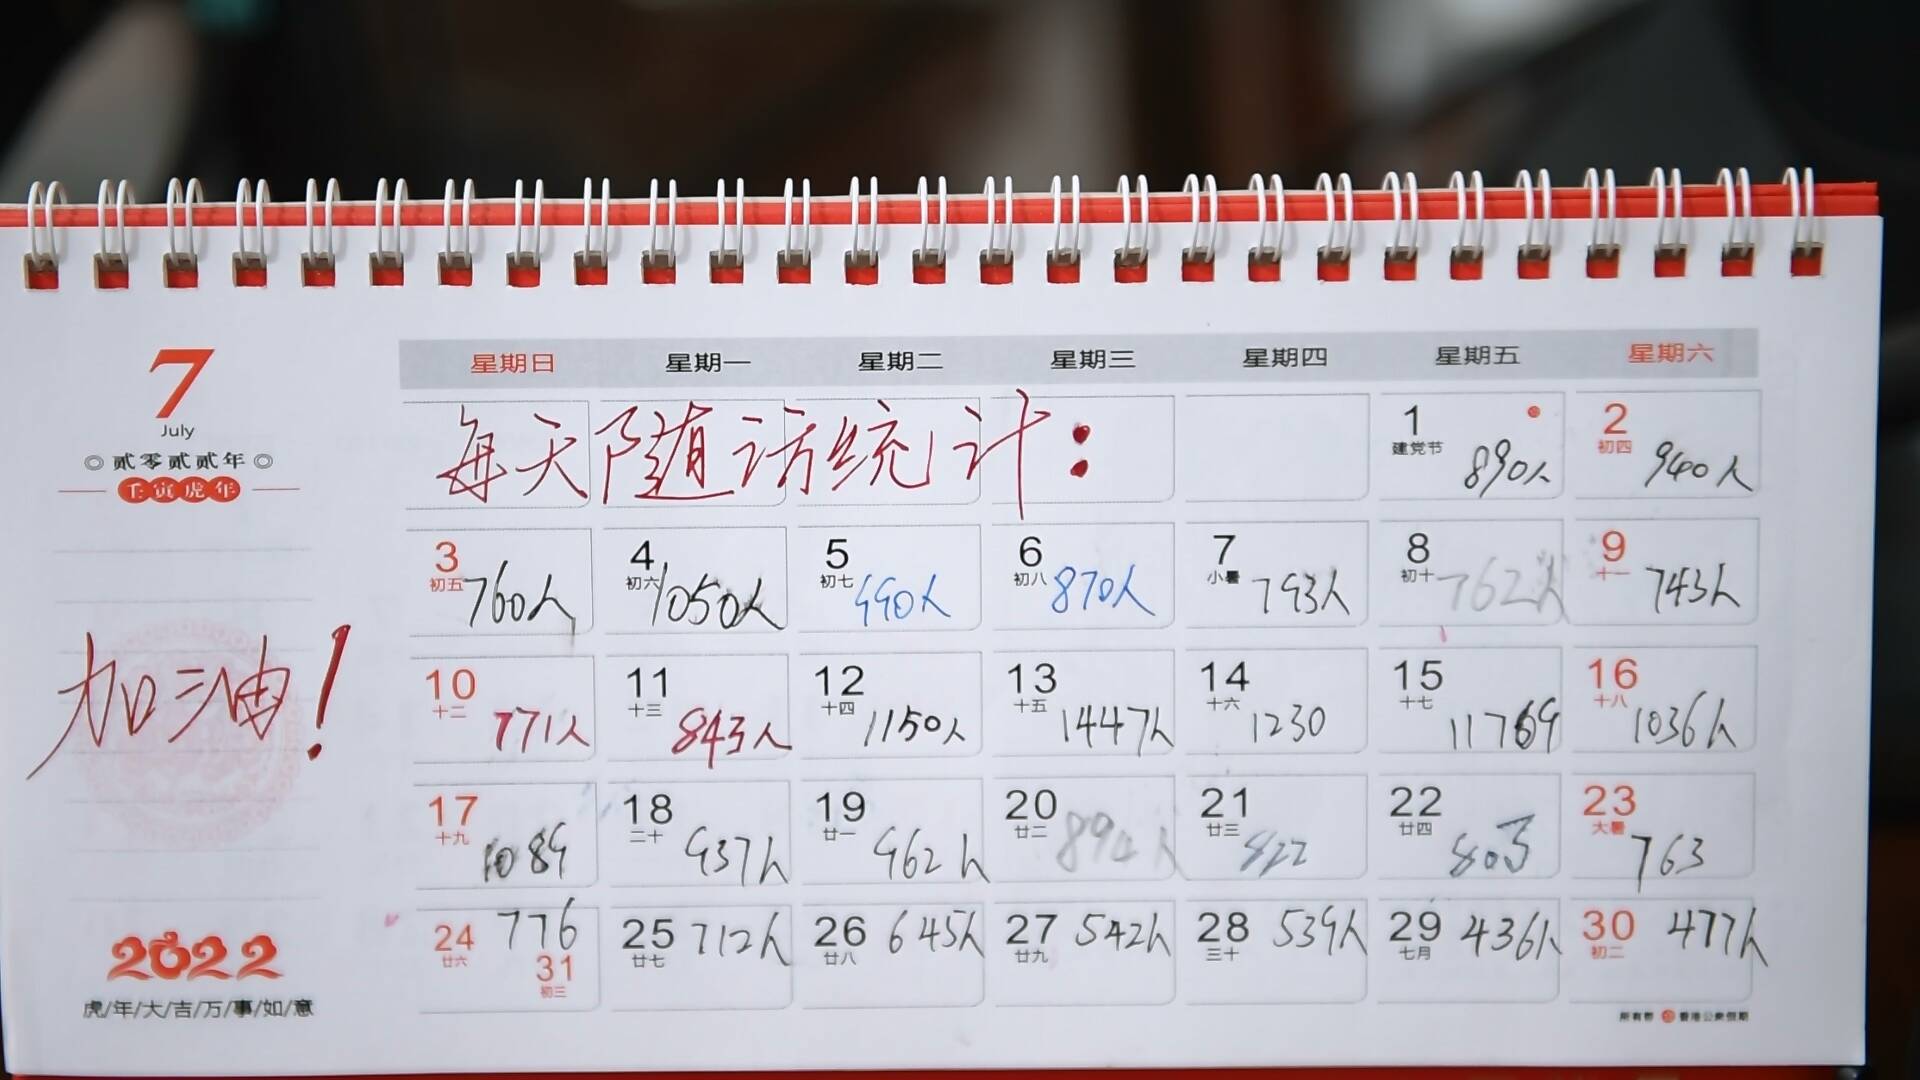 7
July
贰零贰贰年
壬寅虎年
加油!
2022
虎/年/大/吉/万/事/如/意
星期日 星期一 星期二 星期三 星期四 星期五 星期六
每天随访统计:
1 建党节 890人
2 初四 940人
3 初五 760人
4 初六 1050人
5 初七 990人
6 初八 870人
7 小暑 793人
8 初十 762人
9 十一 743人
10 十二 771人
11 十三 843人
12 十四 1150人
13 十五 1447人
14 十六 1230
15 十七
16 十八 1036人
17 十九 1089
18 二十 937人
19 廿一 962人
20 廿二 894人
21 廿三 822
22 廿四 803
23 大暑 763
24 廿六 776
31 初三
25 廿七 712人
26 廿八 645人
27 廿九 542人
28 三十 539人
29 七月 436人
30 初二 477人
香港公众假期